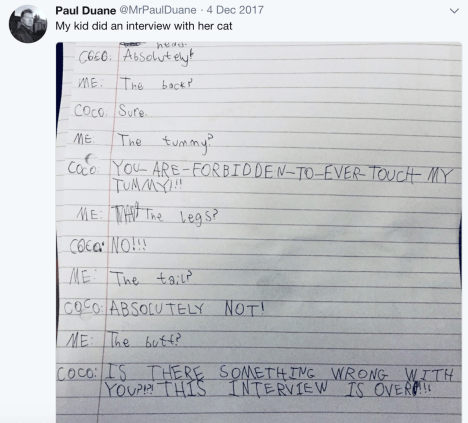 Paul Duane @MrPaulDuane · 4 Dec 2017
My kid did an interview with her cat
head?
COCO: Absolutely!
ME: The back?
COCO: Sure.
ME: The tummy?
COCO: YOU-ARE-FORBIDDEN-TO-EVER-TOUCH MY
TUMMY!!!
ME: The legs?
COCO: NO!!!
ME: The tail?
COCO: ABSOLUTELY NOT!
ME: The butt?
COCO: IS THERE SOMETHING WRONG WITH
YOU?!?! THIS INTERVIEW IS OVER!!!!